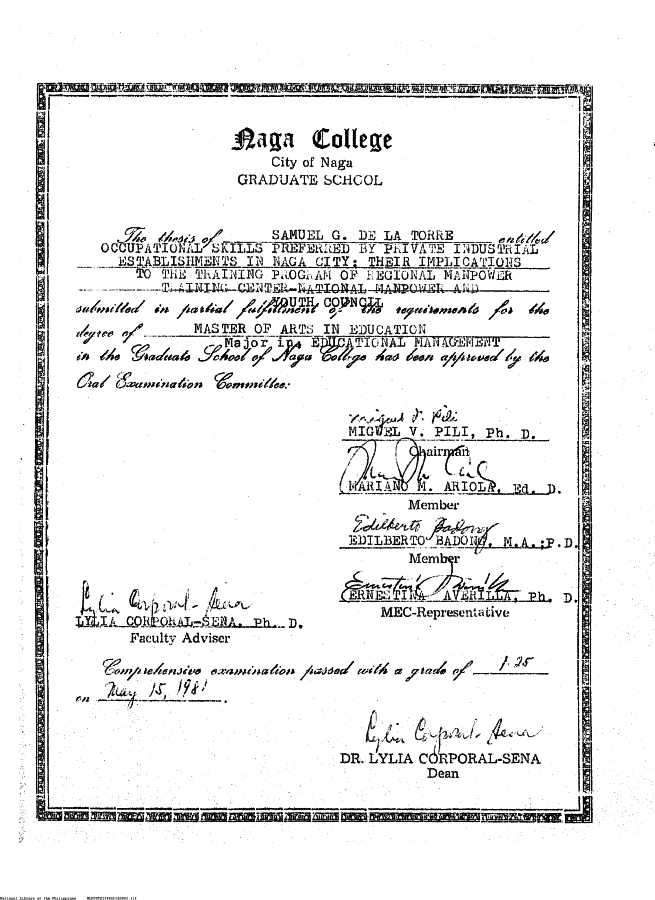 Naga College
City of Naga
GRADUATE SCHOOL
The thesis of SAMUEL G. DE LA TORRE entitled
OCCUPATIONAL SKILLS PREFERRED BY PRIVATE INDUSTRIAL
ESTABLISHMENTS IN NAGA CITY: THEIR IMPLICATIONS
TO THE TRAINING PROGRAM OF REGIONAL MANPOWER
TRAINING CENTER-NATIONAL MANPOWER AND
YOUTH COUNCIL
submitted in partial fulfillment of the requirements for the
degree of MASTER OF ARTS IN EDUCATION
Major in: EDUCATIONAL MANAGEMENT
in the Graduate School of Naga College has been approved by the
Oral Examination Committee:
Miguel V. Pili
MIGUEL V. PILI, Ph. D.
Chairman
MARIANO M. ARIOLA, Ed. D.
Member
Edilberto Badong
EDILBERTO BADONG, M.A.;P.D.
Member
ERNESTINA AVERILLA, Ph. D.
MEC-Representative
Lylia Corporal-Sena
LYLIA CORPORAL-SENA, Ph. D.
Faculty Adviser
Comprehensive examination passed with a grade of 1.25
on May 15, 1981.
Lylia Corporal-Sena
DR. LYLIA CORPORAL-SENA
Dean
National Library of the Philippines